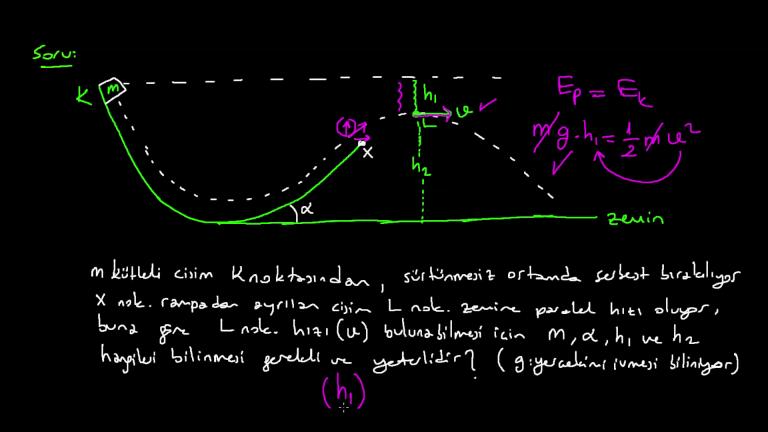 Soru:
K
m
h₁
v
L
h₂
x
α
zemin
Eₚ = Eₖ
m g · h₁ = 1/2 m v²
m kütleli cisim K noktasından, sürtünmesiz ortamda serbest bırakılıyor
X nok. rampadan ayrılan cisim L nok. zemine paralel hızı oluyor,
buna göre L nok. hızı (v) bulunabilmesi için m, α, h₁ ve h₂
hangileri bilinmesi gerekli ve yeterlidir? (g: yerçekimi ivmesi biliniyor)
(h₁)